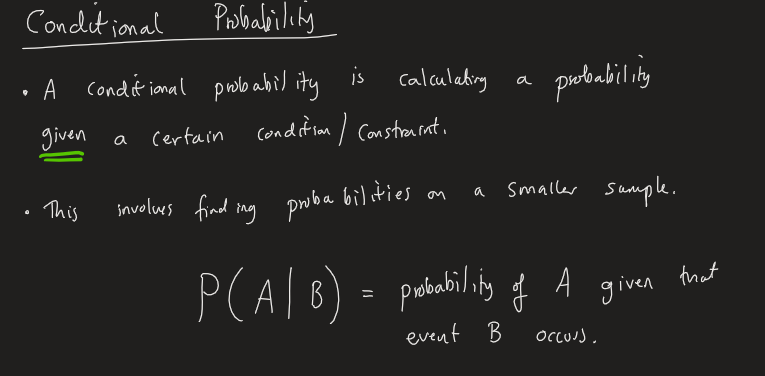 Conditional Probability
• A conditional probability is calculating a probability
given a certain condition/constraint.
• This involves finding probabilities on a smaller sample.
P(A|B) = probability of A given that
event B occurs.